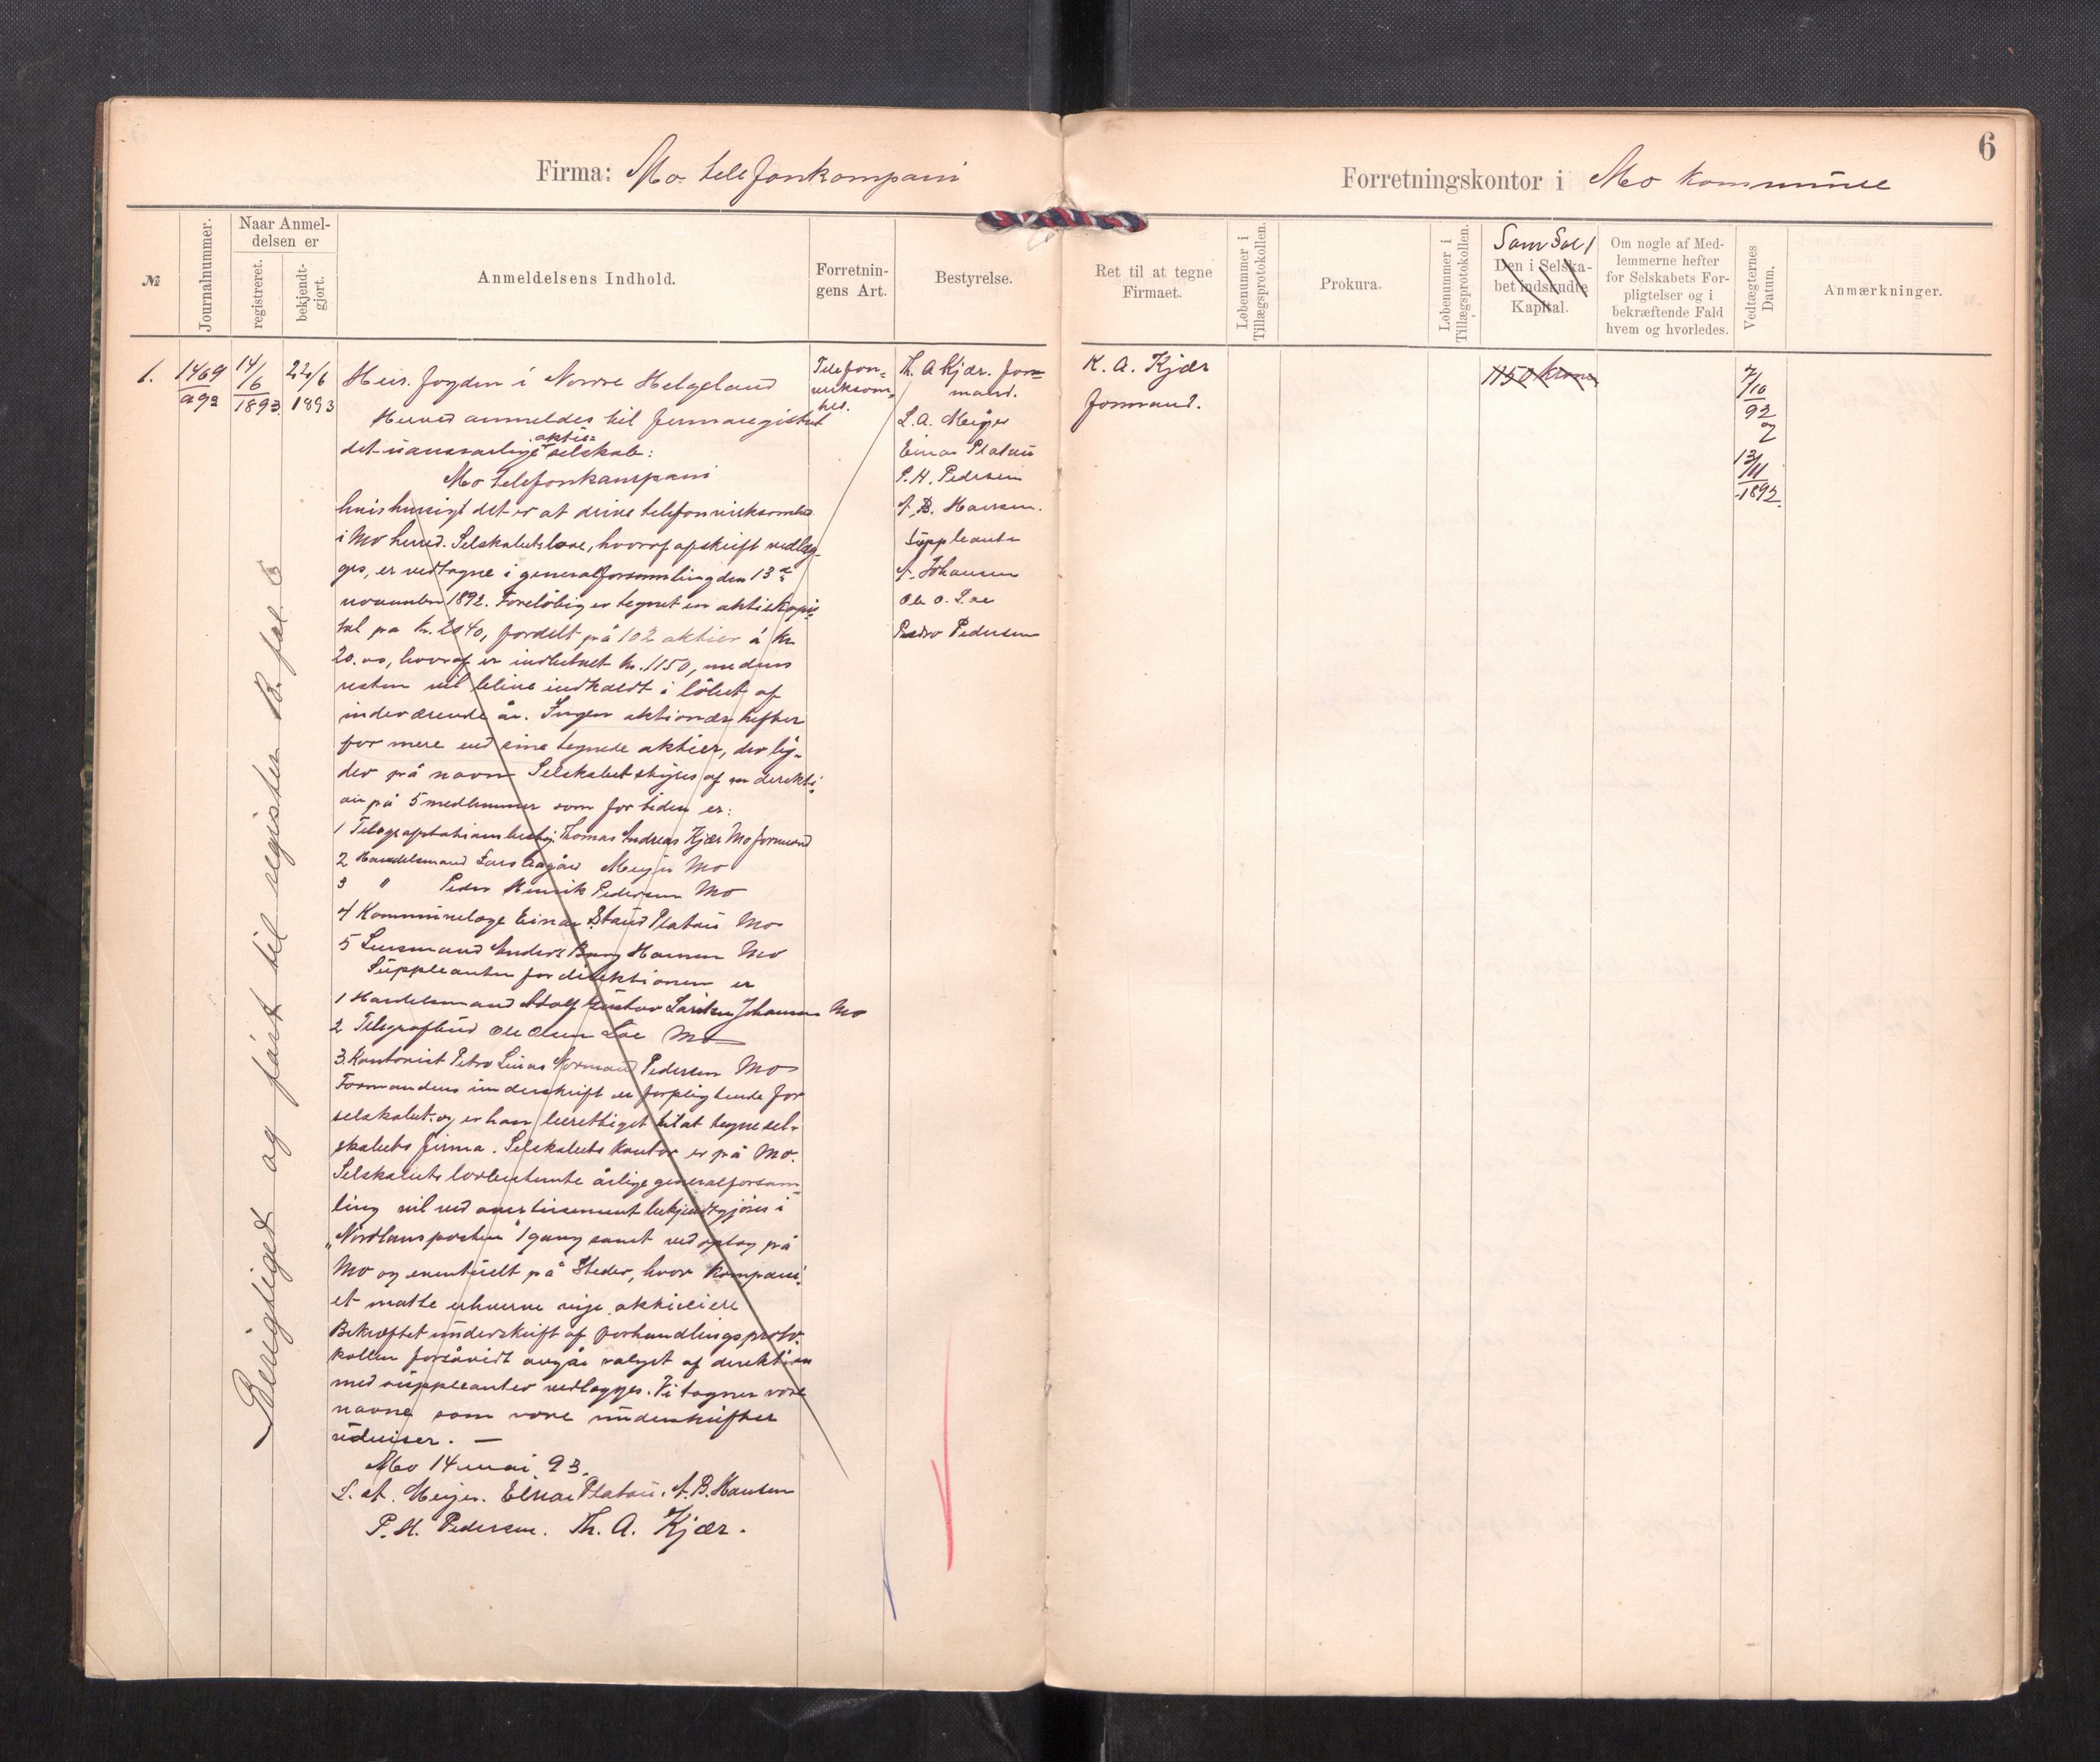 6
Firma: Mo telefonkompani
Forretningskontor i Mo kommune
№
Journalnummer.
Naar Anmel-
delsen er
registreret.
bekjendt-
gjort.
Anmeldelsens Indhold.
Forretnin-
gens Art.
Bestyrelse.
Ret til at tegne
Firmaet.
Lobenummer i
Tillægsprotokollen.
Prokura.
Lobenummer i
Tillægsprotokollen.
Den i Selska-
bet indskudte
Kapital.
Om nogle af Med-
lemmerne hefter
for Selskabets For-
pligtelser og i
bekræftende Fald
hvem og hvorledes.
Vedtægternes
Datum.
Anmærkninger.
1.
1469
a92
14/6
1893
22/6
1893
Herr. fogden i Nordre Helgeland
Herved anmeldes til firmaregistret
aktie=
det uansvarlige selskab:
Mo telefonkompani
hvis hensigt det er at drive telefonvirksomhed
i Mo herred. Selskabets love, hvoraf afskrift vedlæg-
ges, er vedtagne i generalforsamling den 13de
november 1892. Foreløbig er tegnet en aktiekapi-
tal på kr. 2040, fordelt på 102 aktier á kr.
20.00, hvoraf er indbetalt kr. 1150, medens
resten vil blive indkaldt i löbet af
indeværende år. Ingen aktionær hefter
for mere end sine tegnede aktier, der ly-
der på navn. Selskabet styres af en direkti-
on på 5 medlemmer som for tiden er:
1 Telegrafstationsbesty. Thomas Andreas Kjær Mo formand
2 Handelsmand Lars Aagård Meyer Mo
3 " Peder Henrik Pedersen Mo
4 Kommunelæge Einar Platou Mo
5 Lensmand Anders Hansen Mo
Suppleanter for direktionen er
1 Handelsmand Adolf Gustav Johansen Mo
2 Telegrafbud Ole Olsen Mo
3. Kontorist Petro Normand Pedersen Mo
Formandens underskrift er forpligtende for
selskabet og er han berettiget til at tegne sel-
skabets firma. Selskabets kontor er på Mo.
Selskabets lovbestemte årlige generalforsam-
ling vil ved avertissement bekjendtgjøres i
„Nordlandsposten" 1 gang samt ved opslag på
Mo og eventuelt på Steder, hvor kompani-
et måtte erhverve nye aktieeiere
Bekræftet underskrift af forhandlingsproto-
kollen forsåvidt angår valget af direktion
med suppleanter vedlægges. Vi tegner vore
navne som vore underskrifter
udviser. —
Mo 14 mai 93.
L. A. Meyer. Einar Platou. A. B. Hansen
P. H. Pedersen. Th. A. Kjær.
Telefon=
virksom=
hed.
Th. A Kjær. for=
mand.
L. A. Meyer
Einar Platou
P. H. Pedersen
A. B. Hansen.
Suppleanter
A. Johansen
Ole O.
Pedro Pedersen
K. A. Kjær
formand.
1150 kroner
7/10
92
og
13/11
1892.
Berigtiget og fört til register B. fol. 5